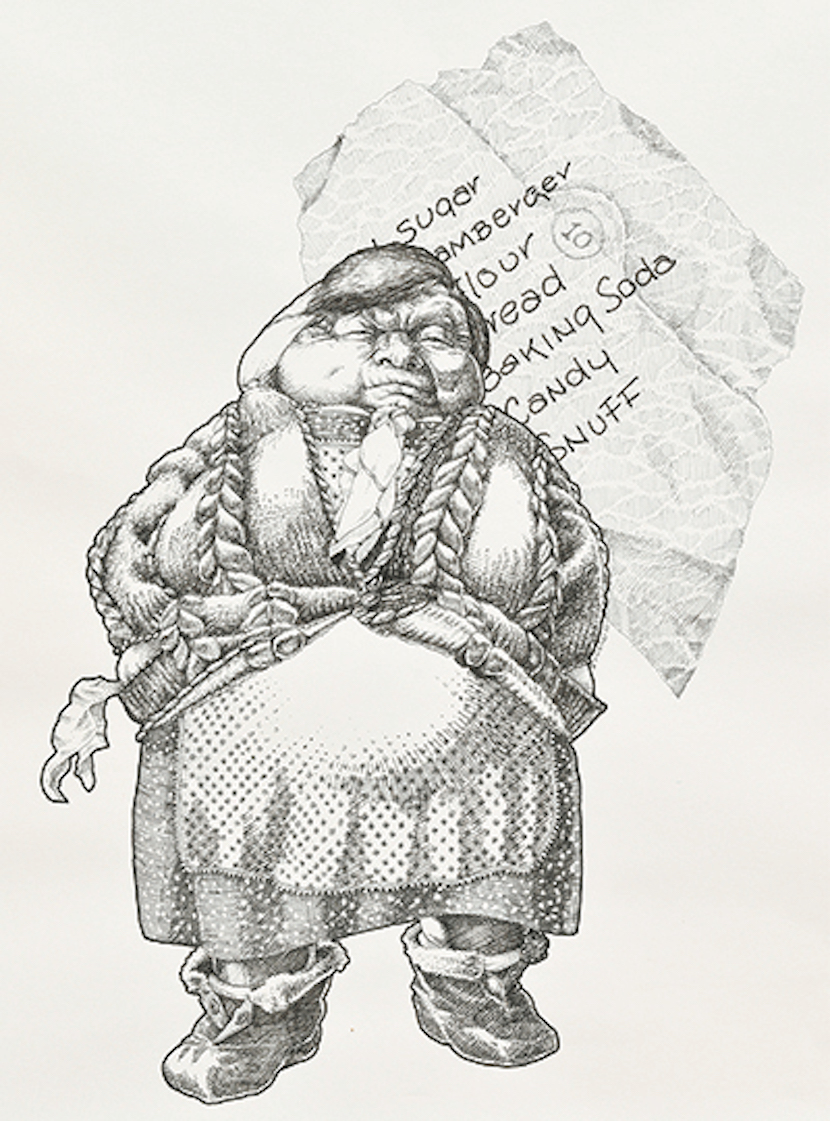 Sugar
amBerger
lour
read
BaKING Soda
Candy
SNUFF
10